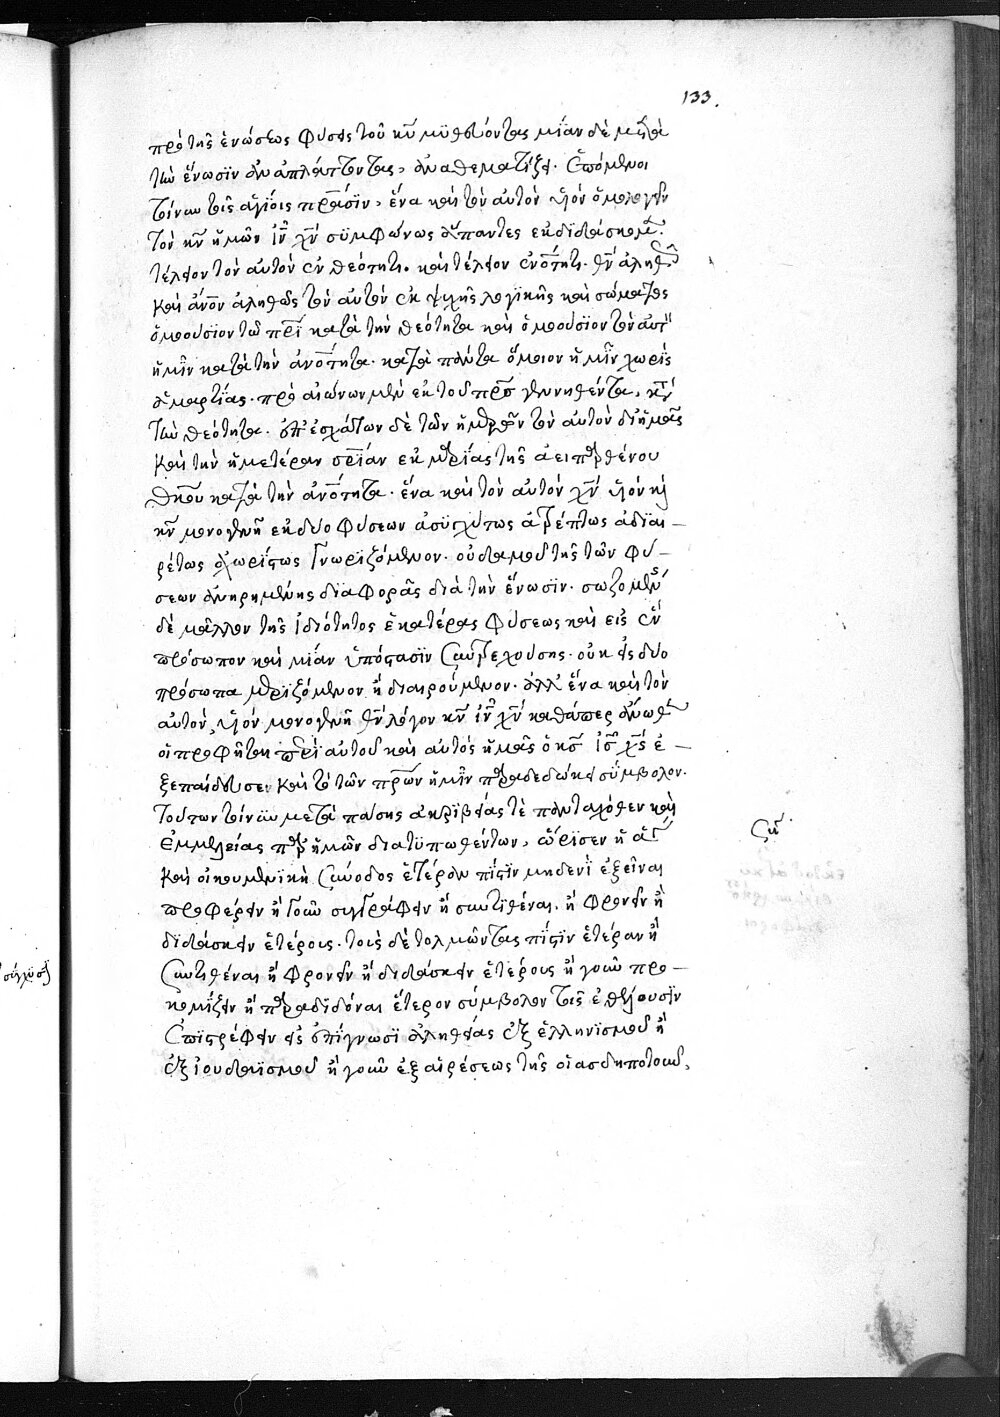 133.
πρὸ τῆς ἑνώσεως φύσεις τοῦ κυ μυθεύοντας μίαν δὲ μετὰ
τὴν ἕνωσϊν ἀναπλάττοντας, ἀναθεματίζει. Ἑπόμενοι
τοίνυν τοῖς ἁγίοις πρασϊν, ἕνα καὶ τὸν αὐτὸν ὑϊὸν ὁμολογεῖν
τὸν κν ἡμῶν ιν χν συμφώνως ἅπαντες ἐκδιδάσκομεν.
τέλειον τὸν αὐτὸν ἐν θεότητι. καὶ τέλειον ἐν ανοτητι. θν ἀληθῶς
καὶ ανον ἀληθῶς τὸν αὐτὸν ἐκ ψυχῆς λογϊκῆς καὶ σώματος
ὁμοούσϊον τῶ πρι κατὰ τὴν θεότητα καὶ ὁμοούσϊον τὸν αὐτὸν
ἡμῖν κατὰ τὴν ανοτητα. κατὰ πάντα ὅμοιον ἡμῖν χωρὶς
ἁμαρτίας. πρὸ αἰώνων μὲν ἐκ τοῦ πρς γεννηθέντα, κατὰ
τὴν θεότητα. ἐπ' ἐσχάτων δὲ τῶν ἡμερῶν τὸν αὐτὸν δι' ἡμᾶς
καὶ τὴν ἡμετέραν σριαν ἐκ μαρίας τῆς ἀειπαρθένου
θκου κατὰ τὴν ανοτητα. ἕνα καὶ τὸν αὐτὸν χν ὑϊὸν κὶ
κν μονογενῆ ἐκ δυο φύσεων ἀσϋγχύτως ἀτρέπτως ἀδϊαι-
ρέτως ἀχωρίστως γνωρϊζόμενον. οὐδαμοῦ τῆς τῶν φύ-
σεων ἀνηρημένης διαφορᾶς διὰ τὴν ἕνωσϊν. σωζομένης
δὲ μᾶλλον τῆς ἰδιότητος ἑκατέρας φύσεως καὶ εἰς ἓν
πρόσωπον καὶ μίαν ὑπόστασϊν συντρεχούσης. οὐκ εἰς δύο
πρόσωπα μερϊζόμενον ἢ διαιρούμενον. ἀλλ' ἕνα καὶ τὸν
αὐτὸν, ὑϊὸν μονογενῆ θν λόγον κν ιν χν καθάπερ ἄνωθεν
οἱ προφῆται περὶ αὐτοῦ καὶ αὐτὸς ἡμᾶς ὁ κς ις χς ἐ-
ξεπαίδευσε. καὶ τὸ τῶν πρων ἡμῖν παραδεδώκει σύμβολον.
Τούτων τοίνϋν μετὰ πάσης ἀκρϊβείας τὲ πανταχόθεν καὶ
ἐμμελείας παρ' ἡμῶν διατϋπωθέντων, ὥρϊσεν ἡ ἁγία
καὶ οἰκουμενϊκὴ σύνοδος ἑτέραν πίστϊν μηδενὶ ἐξεῖναι
προφέρειν ἢ γοῦν συγγράφειν ἢ συντιθέναι. ἢ φρονεῖν ἢ
δϊδάσκειν ἑτέροις. τοὺς δὲ τολμῶντας πίστϊν ἑτέραν ἢ
συντιθέναι ἢ φρονεῖν ἢ διδάσκειν ἑτέροις ἢ γοῦν προ-
κομίζειν ἢ παραδϊδόναι ἕτερον σύμβολον τοῖς ἐθέλουσϊν
ἐπϊστρέφειν εἰς ἐπίγνωσϊ ἀληθείας ἐξ ἑλληνϊσμοῦ ἢ
ἐξ ἰουδαϊσμοῦ ἢ γοῦν ἐξ αἱρέσεως τῆς οἱασδηποτοῦν,